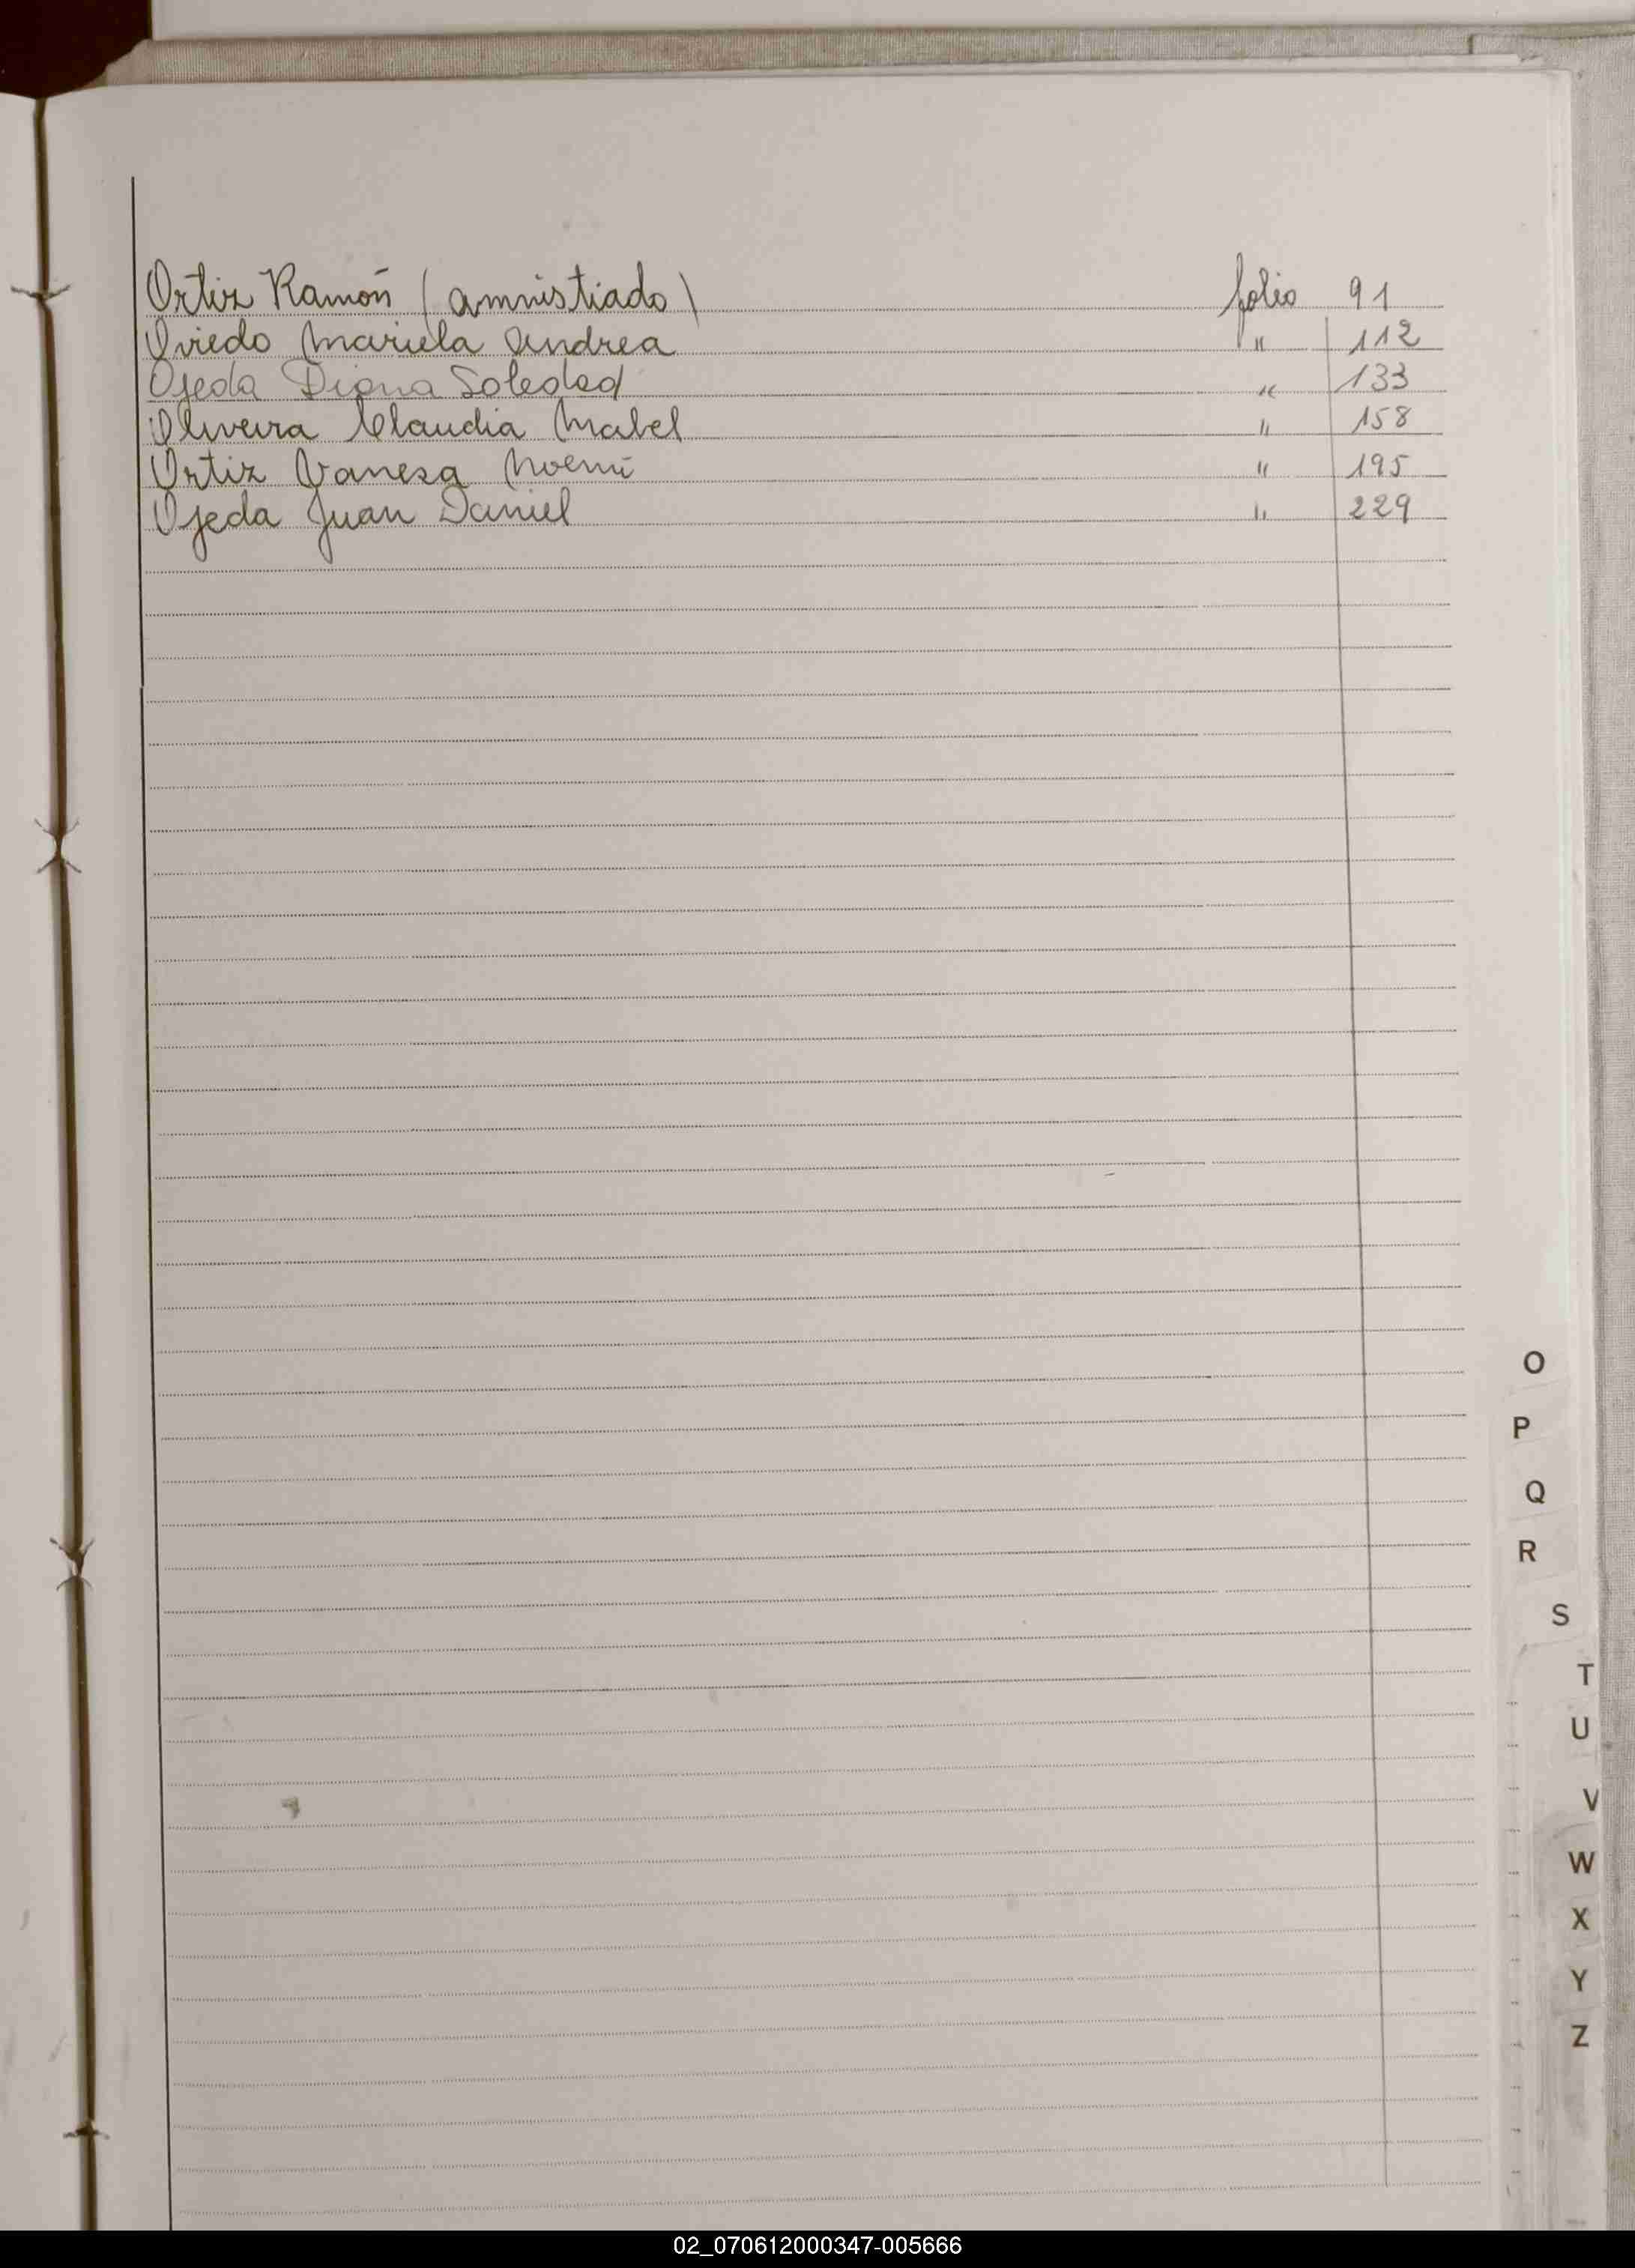 Ortiz Ramón (amnistiado) folio 91
Oviedo Mariela Andrea " 112
Ojeda Diana Soledad " 133
Oliveira Claudia Mabel " 158
Ortiz Vanesa Noemí " 195
Ojeda Juan Daniel " 229
O
P
Q
R
S
T
U
V
W
X
Y
Z
02_070612000347-005666